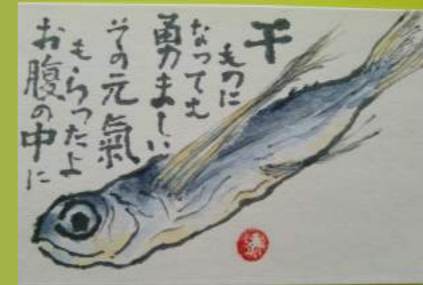 干
ものに
なっても
勇ましい
その元氣
もらったよ
お腹の中に